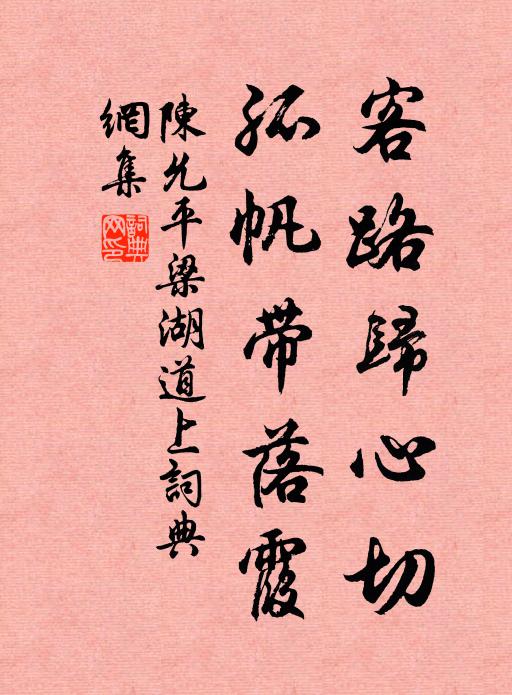 客路歸心切
孤帆帶落霞
陳允平梁湖道上詞典
網集
詞典
网印